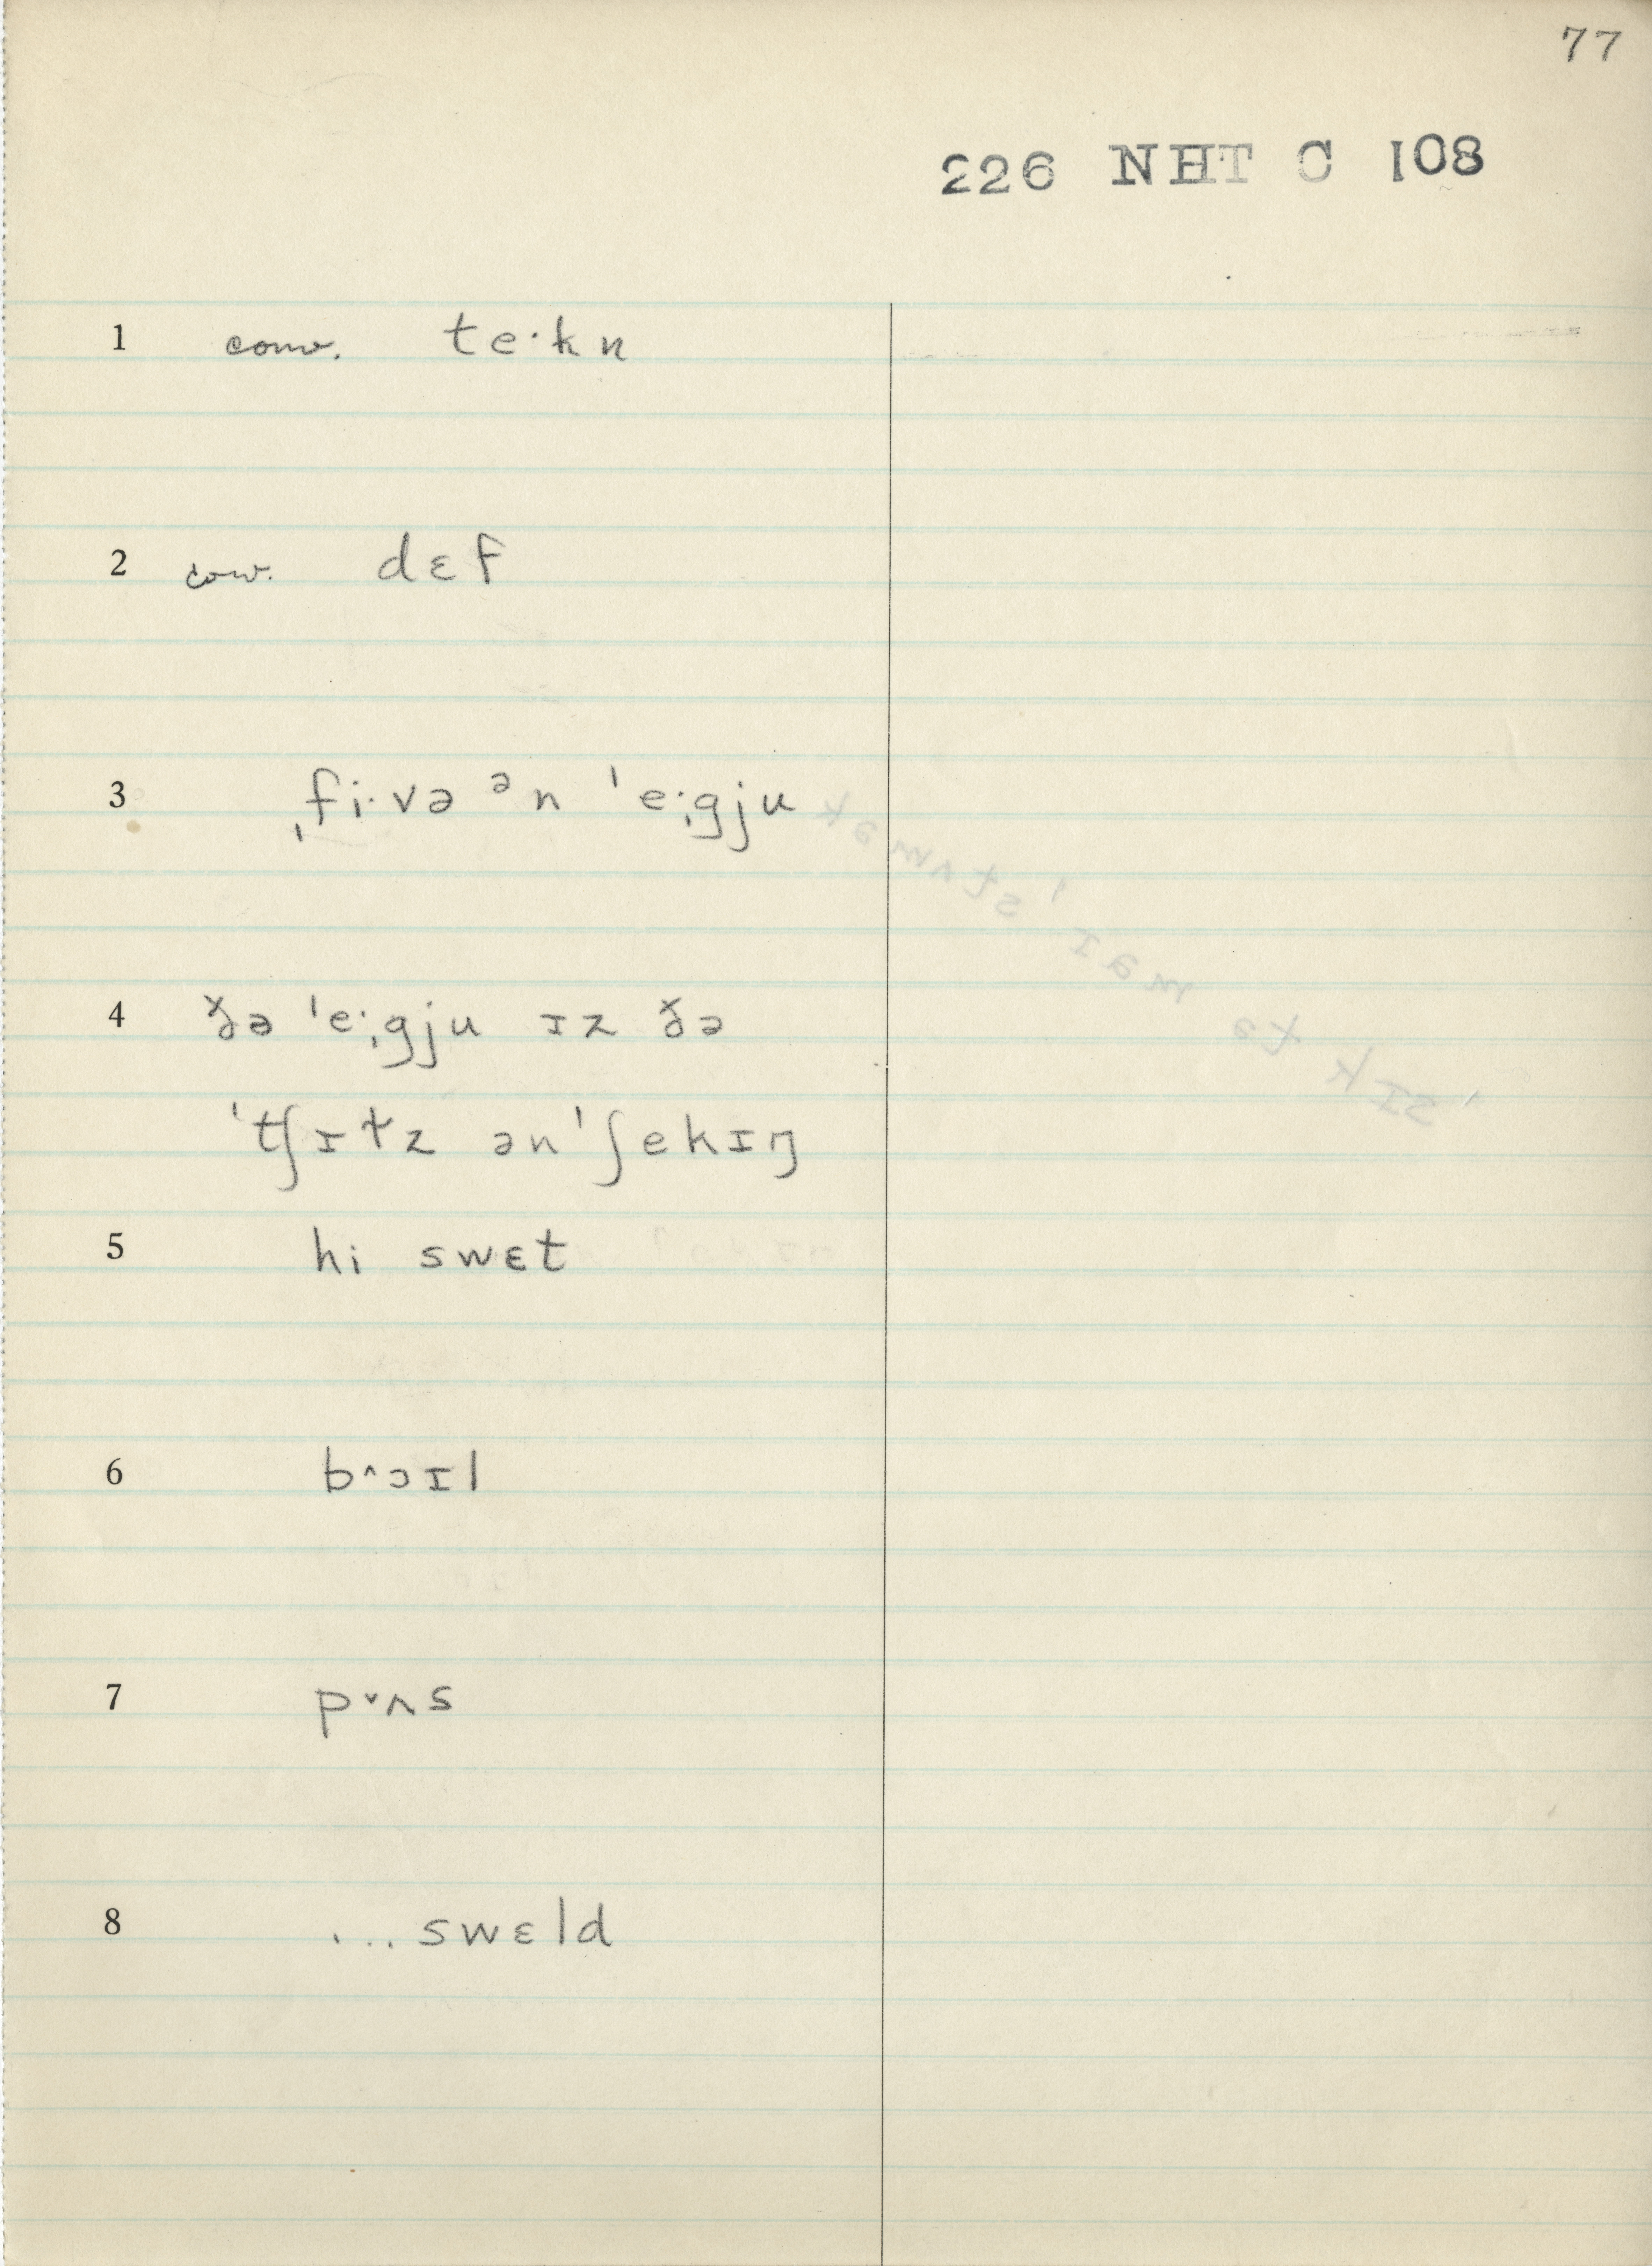 77
226 NHT C 108
1 conv. te·kn
2 conv. dɛf
3 ˌfi·və ᵊn ˈe·ˌgju
4 ðə ˈe·ˌgju ɪz ðə
ˈtʃɪɫz ənˈʃekɪŋ
5 hi swɛt
6 b˄ɔɪl
7 p˅ʌs
8 ... swɛld